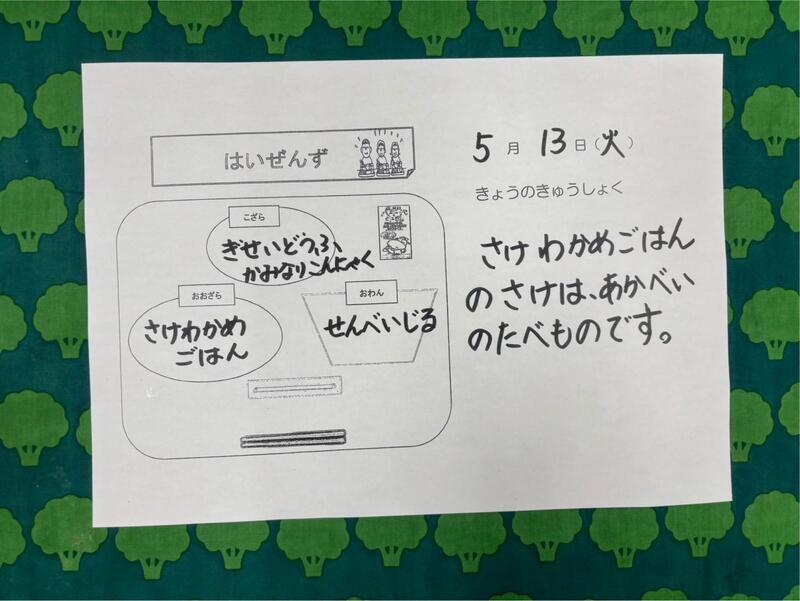 はいぜんず
5月13日(火)
きょうのきゅうしょく
こざら
ぎせいどうふ、
かみなりこんにゃく
おおざら
さけわかめ
ごはん
おわん
せんべいじる
さけわかめごはん
のさけは、あかべぃ
のたべものです。